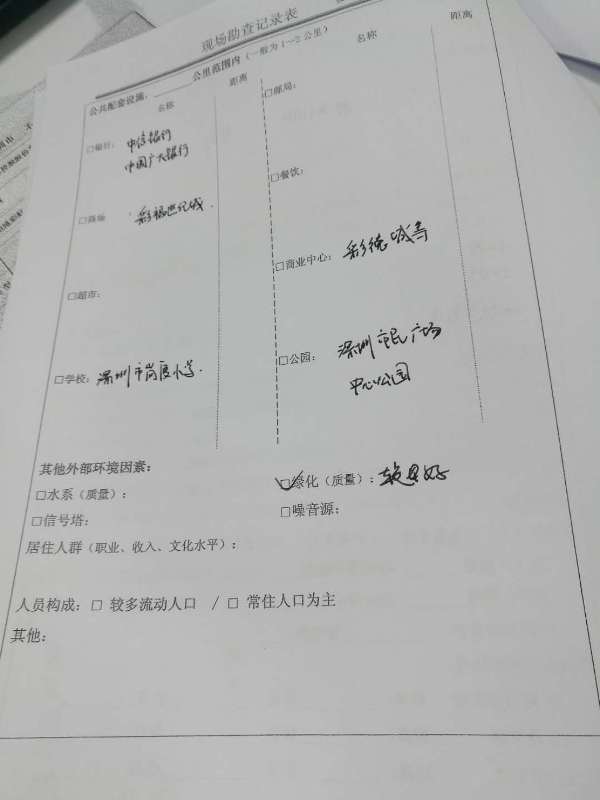 现场勘查记录表
公共配套设施: 公里范围内(一般为1~2公里)
名称 距离 名称 距离
□银行: 中信银行
中国广大银行
□邮局:
□餐饮:
□商场 彩福世纪城.
□商业中心: 彩德城等
□超市:
□学校: 深圳市岗厦小学.
□公园: 深圳市民广场
中心公园
其他外部环境因素:
□水系(质量):
☑绿化(质量): 较良好
□信号塔:
□噪音源:
居住人群(职业、收入、文化水平):
人员构成: □ 较多流动人口 / □ 常住人口为主
其他: